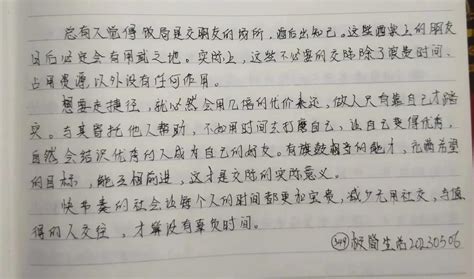 总有人觉得饭局是交朋友的场所，酒后出知己。这些酒桌上的朋友
日后必定会有用武之地。实际上，这些不必要的交际除了浪费时间、
占用资源以外没有任何作用。
想要走捷径，就必然会用几倍的代价来还，做人只有靠自己才踏
实。与其寄托他人帮助，不如用时间去打磨自己，让自己变得优秀，
自然会结识优秀的人成为自己的好友。有旗鼓相当的能才，充满希望
的目标，能互相前进，这才是交际的实际意义。
快节奏的社会让每个人的时间都更加宝贵，减少无用社交，与值
得的人交往，才算没有辜负时间。
349 极简生活20230506